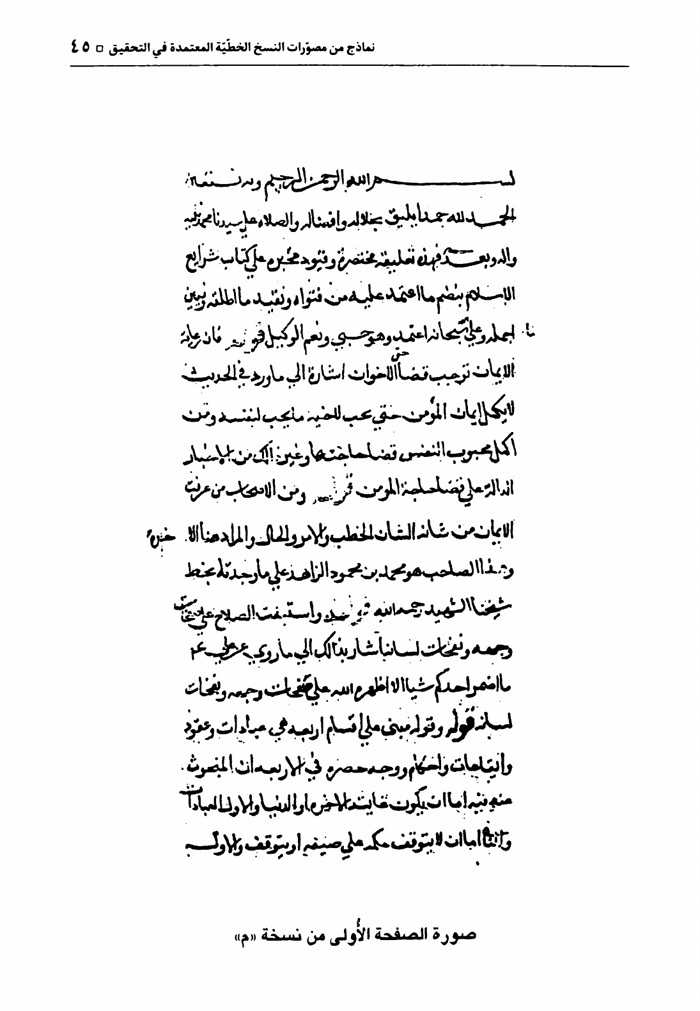 نماذج من مصوّرات النسخ الخطّيّة المعتمدة في التحقيق □ ٤٥
بسم الله الرحمن الرحيم وبه نستعين
الحمد لله حمدا يليق بجلاله وافضاله والصلاه على سيدنا محمد نبيه
واله وبعد فهذه تعليقة مختصرة وقيود محبره على كتاب شرايع
الاسلام يتضم ما اعتمد عليه من فتواه وتقييد ما اطلقه وتبيين
اجمله وعلى الله سبحانه اعتمد وهو حسبي ونعم الوكيل قوله فان رعاية
الايمان توجب قضا حق الاخوان اشارة الي ما ورد في الحديث
لا يكمل ايمان المؤمن حتي يحب لاخيه ما يحب لنفسه ومن
اكمل محبوب النفس قضا حاجتها وغير ذلك من الاخبار
الدالة على قضا حاجة المومن قوله ومن الاصحاب من عرفت
الايمان من شانه الشان الخطب والامر والحال والمراد هنا الاخيره
وهذا الصاحب هو محمد بن محمود الزاهد علي ما وجدته بخط
شيخنا الشهيد رحمه الله قوله واستبنت الصلاح على صفحات
وجهه ونفحات لسانه اشار بذلك الي ما روي عن علي ع م
ما اضمر احدكم شيا الا اظهره الله علي صفحات وجهه ونفحات
لسانه قوله وقوله مبنى علي اقسام اربعه هي عبادات وعقود
وايقاعات واحكام ووجه حصره في الاربعه ان المبحوث
عنه فيه اما ان يكون غايته الاخره او الدنيا والاول العبادات
والثاني اما ان لا يتوقف حكمه علي صيغه او يتوقف والاول
صورة الصفحة الأُولى من نسخة «م»